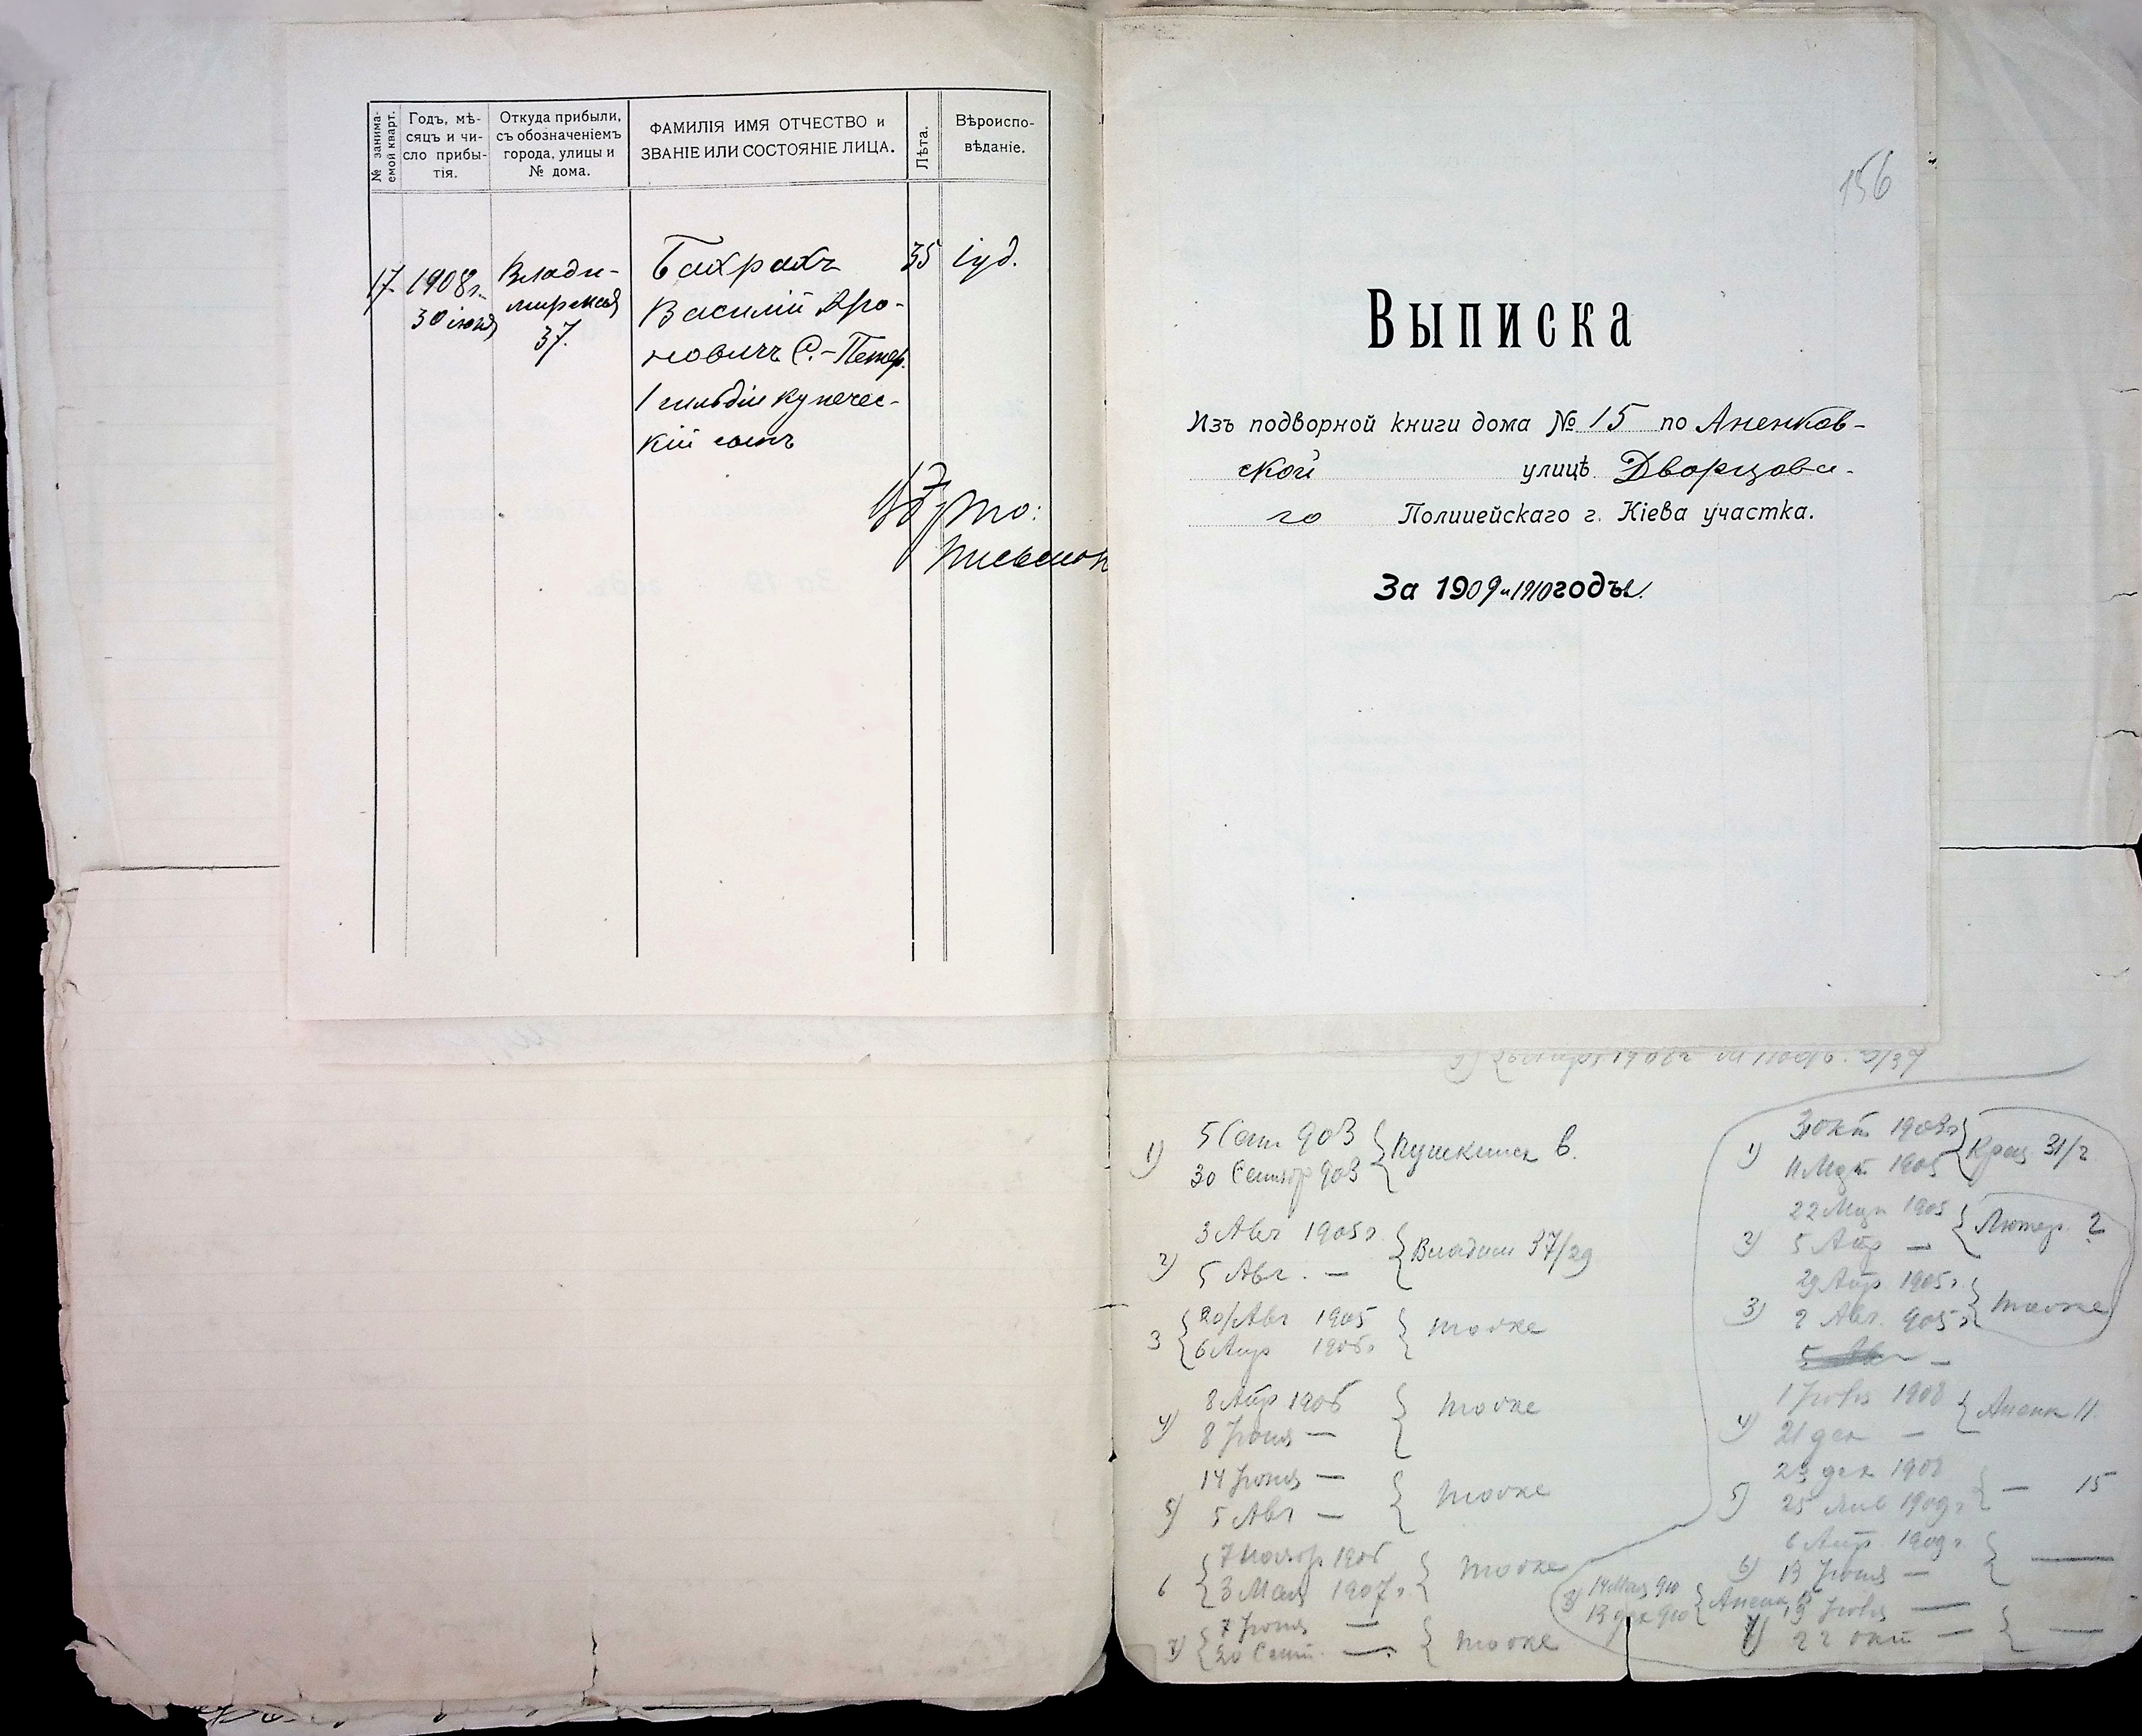 № занима-
емой кварт.
Годъ, мѣ-
сяцъ и чи-
сло прибы-
тія.
Откуда прибыли,
съ обозначеніемъ
города, улицы и
№ дома.
ФАМИЛІЯ ИМЯ ОТЧЕСТВО и
ЗВАНІЕ ИЛИ СОСТОЯНІЕ ЛИЦА.
Лѣта.
Вѣроиспо-
вѣданіе.
17.
1908г.
30 іюня
Влади-
мирская
37.
Бахрахъ
Василій Аро-
новичъ С.-Петер.
1 гильдіи купечес-
кій сынъ
35
іуд.
156
Выписка
Изъ подворной книги дома № 15 по Аненков-
ской улицѣ Дворцова-
го Полицейскаго г. Кіева участка.
За 1909 и 1910 годъы.
1) 5 Сент 903
30 Сентбр 903 } Пушкинск 6.
2) 3 Авг 1905г.
5 Авг. — } Владим 37/29
3 { 20 Авг 1905
6 Апр 1906г } тоже
4) 8 Апр 1906
8 Іюня — } тоже
5) 14 Іюня —
5 Авг — } тоже
6 { 7 Ноябр 1906
3 Мая 1907г. } тоже
7) { 7 Іюня —
20 Сент. — } тоже
1) 3 окт 1903г
11 Мрт 1905 } Крещ 31/2
2) 22 Мрт 1905
5 Апр — } Лютер. 2
3) 29 Апр 1905г.
2 Авг. 905г. } тоже
4) 1908
21 дек — } Аненк 11.
5) 23 дек 1908
25 Янв 1909г. } — 15
6) 6 Апр. 1909г.
13 Іюня — } —
7) 22 окт — } —
8) 14 Мая 910
13 дек 910 } Аненк